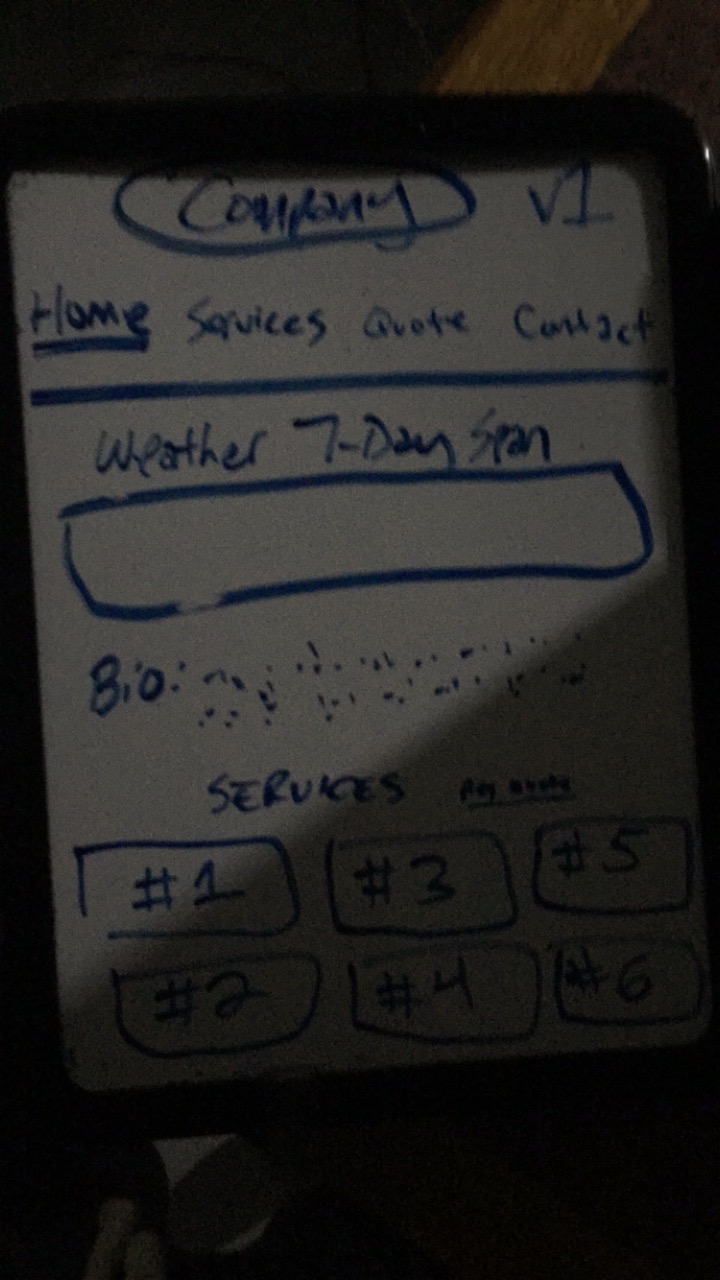 Company V1
Home Services Quote Contact
Weather 7-Day Span
Bio:
SERVICES
#1 #3 #5
#2 #4 #6